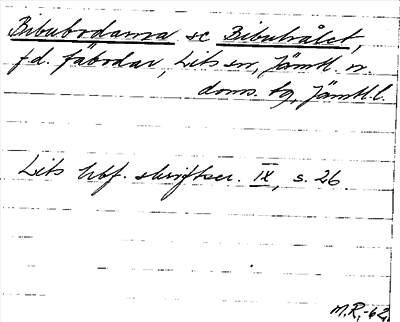 Bibubodarna sc Bibuhålet,
f.d. fäbodar, Lits sn, Jämtl. n.
doms. tg, Jämtl. l.
Lits hbf. skriftser. IX, s. 26.
M.R. -62